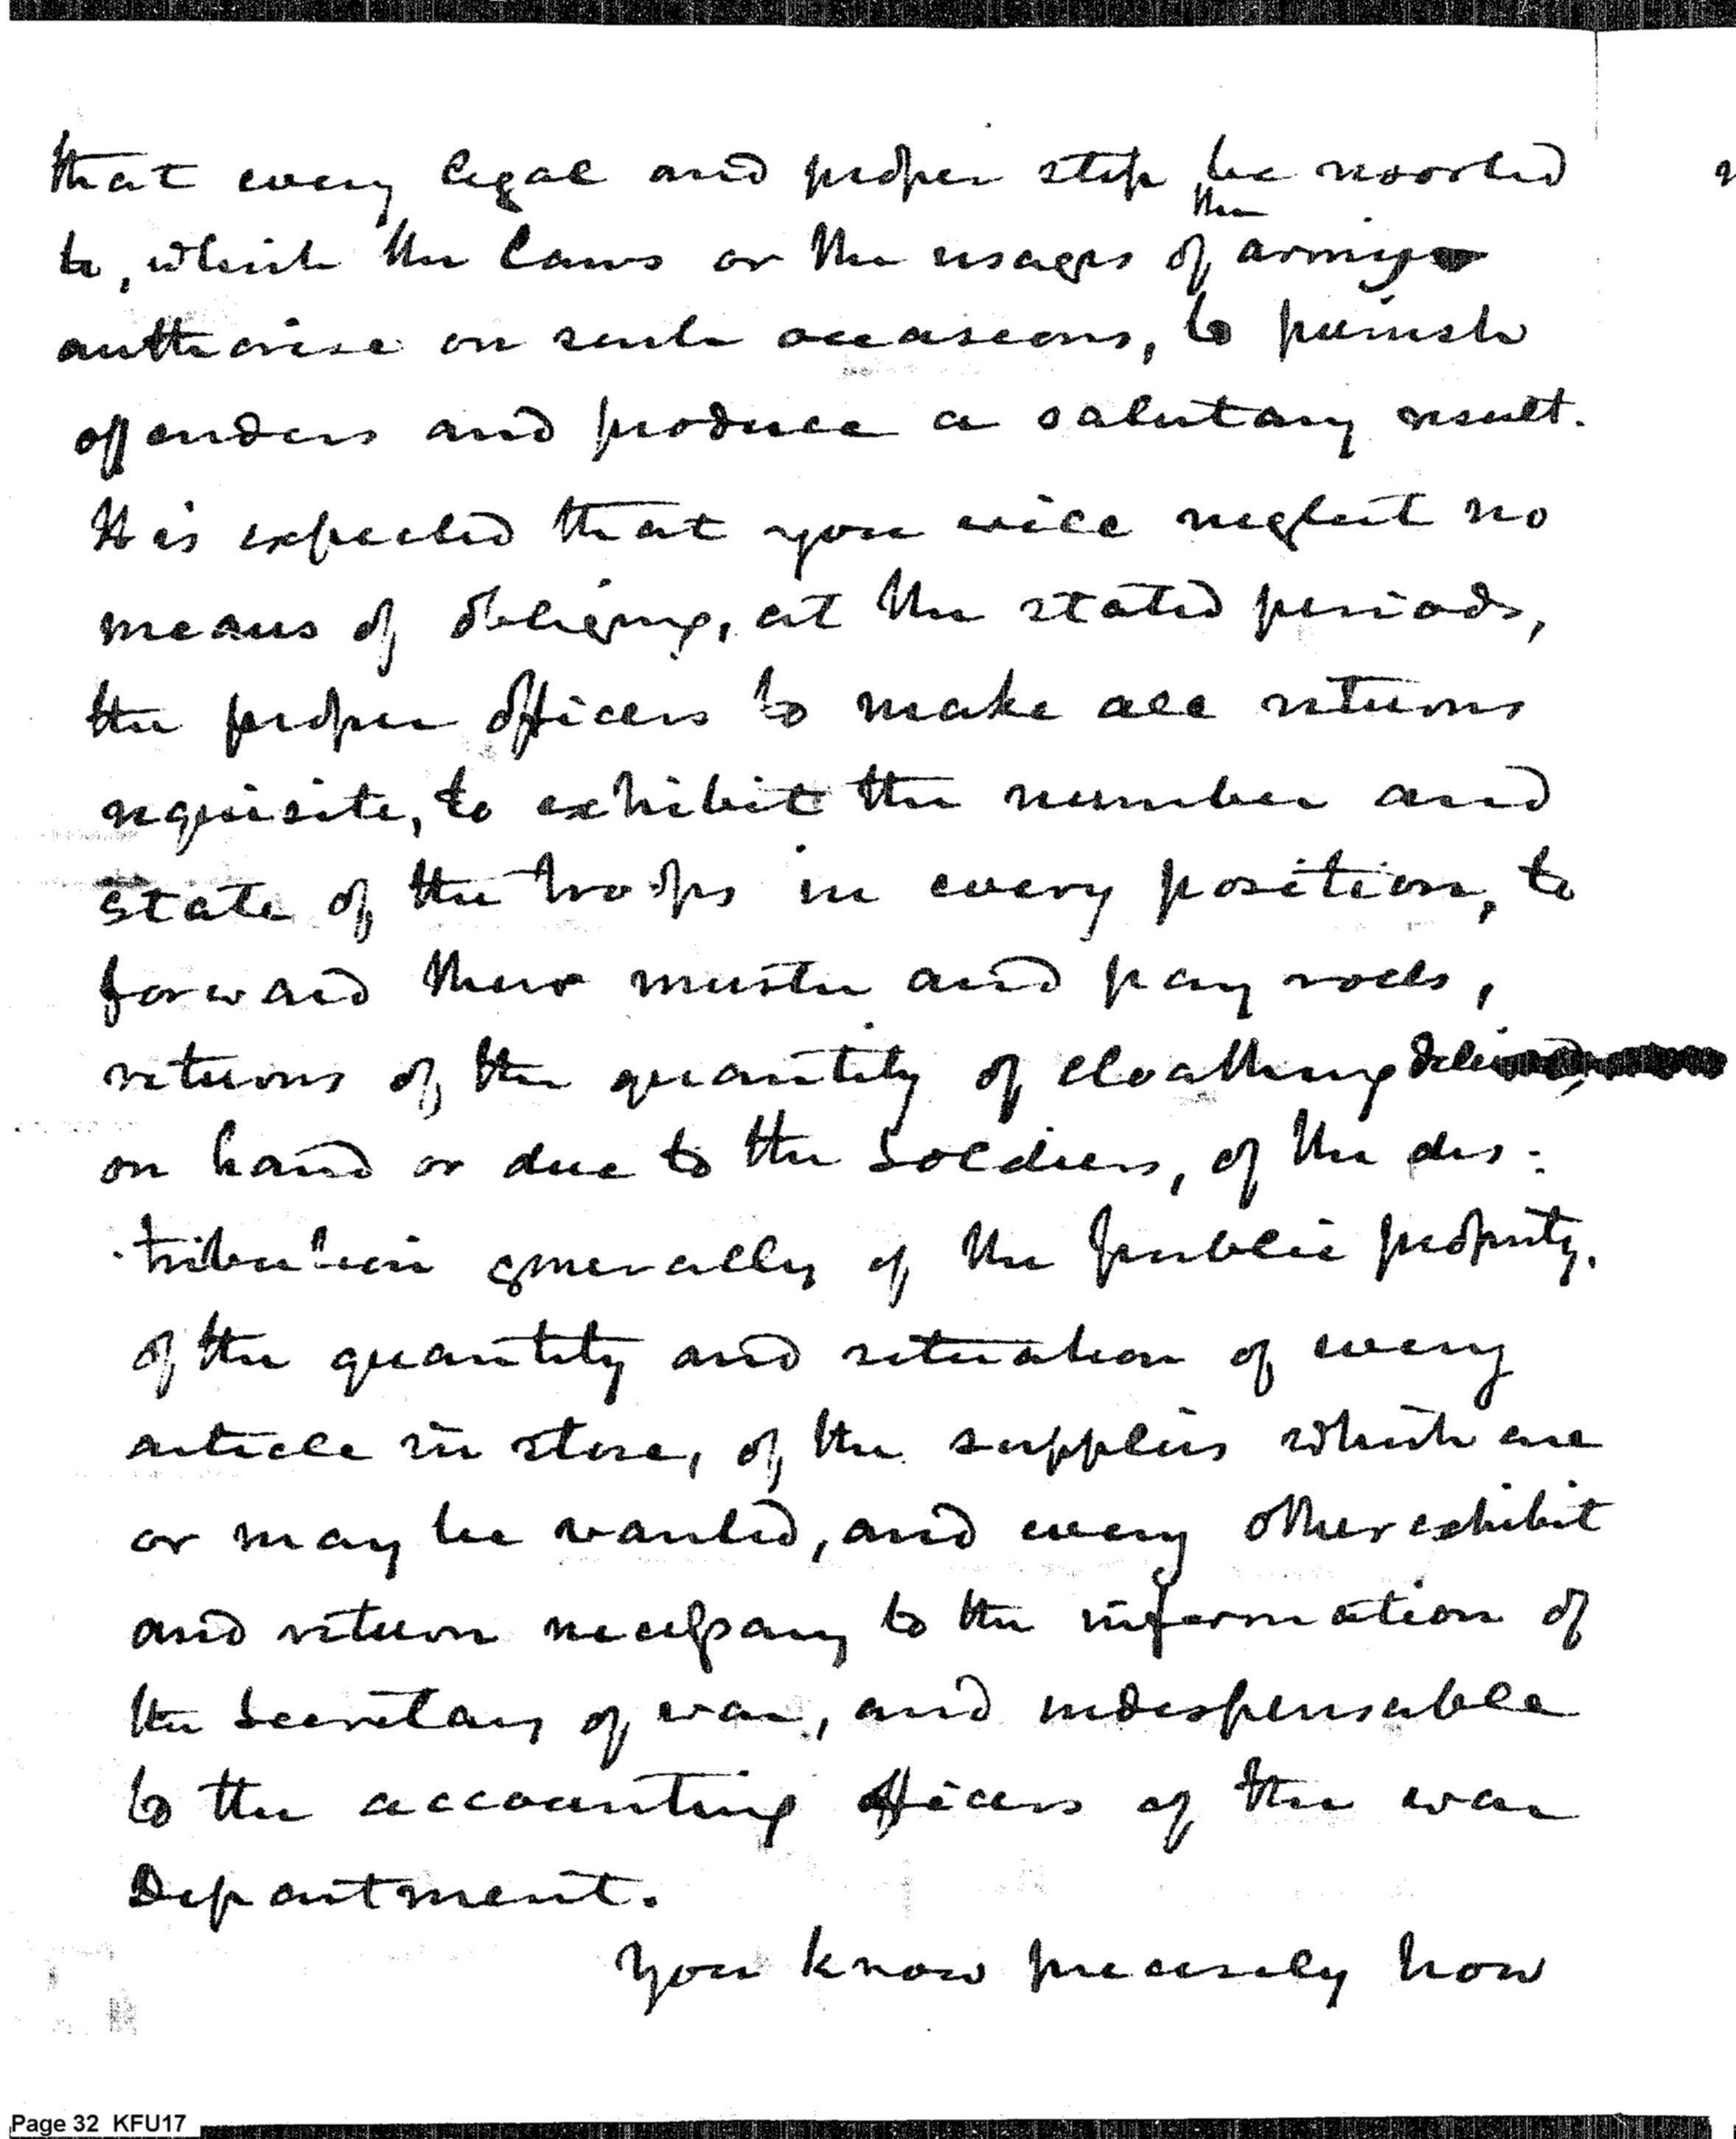 that every legal and proper step be resorted
to, which the laws or the usages of the army
authorise on such occasions, to punish
offenders and produce a salutary result.
It is expected that you will neglect no
means of obliging, at the stated periods,
the proper officers to make all returns
requisite, to exhibit the number and
state of the troops in every position, to
forward their muster and pay rolls,
returns of the quantity of cloathing
on hand or due to the Soldiers, of the dis:
tribution generally of the public property.
of the quantity and situation of every
article in store, of the supplies which are
or may be wanted, and every other exhibit
and return necessary to the information of
the Secretary of war, and indispensable
to the accounting officers of the war
Department.
You know precisely how
Page 32 KFU17